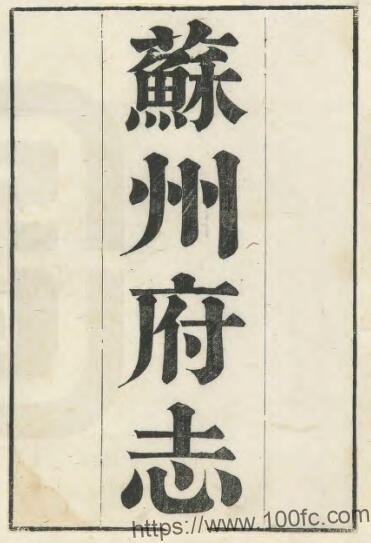 蘇州府志
https://www.100fc.com